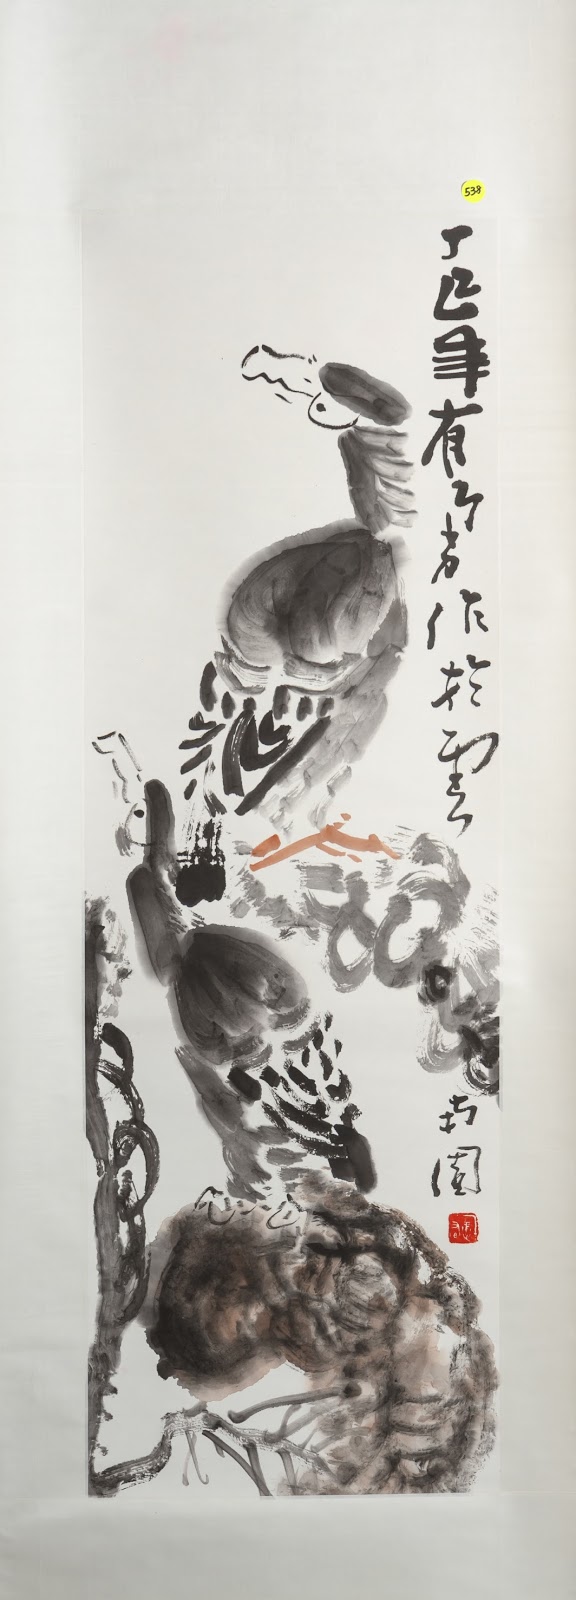 538
丁巳年有方作於雲
園